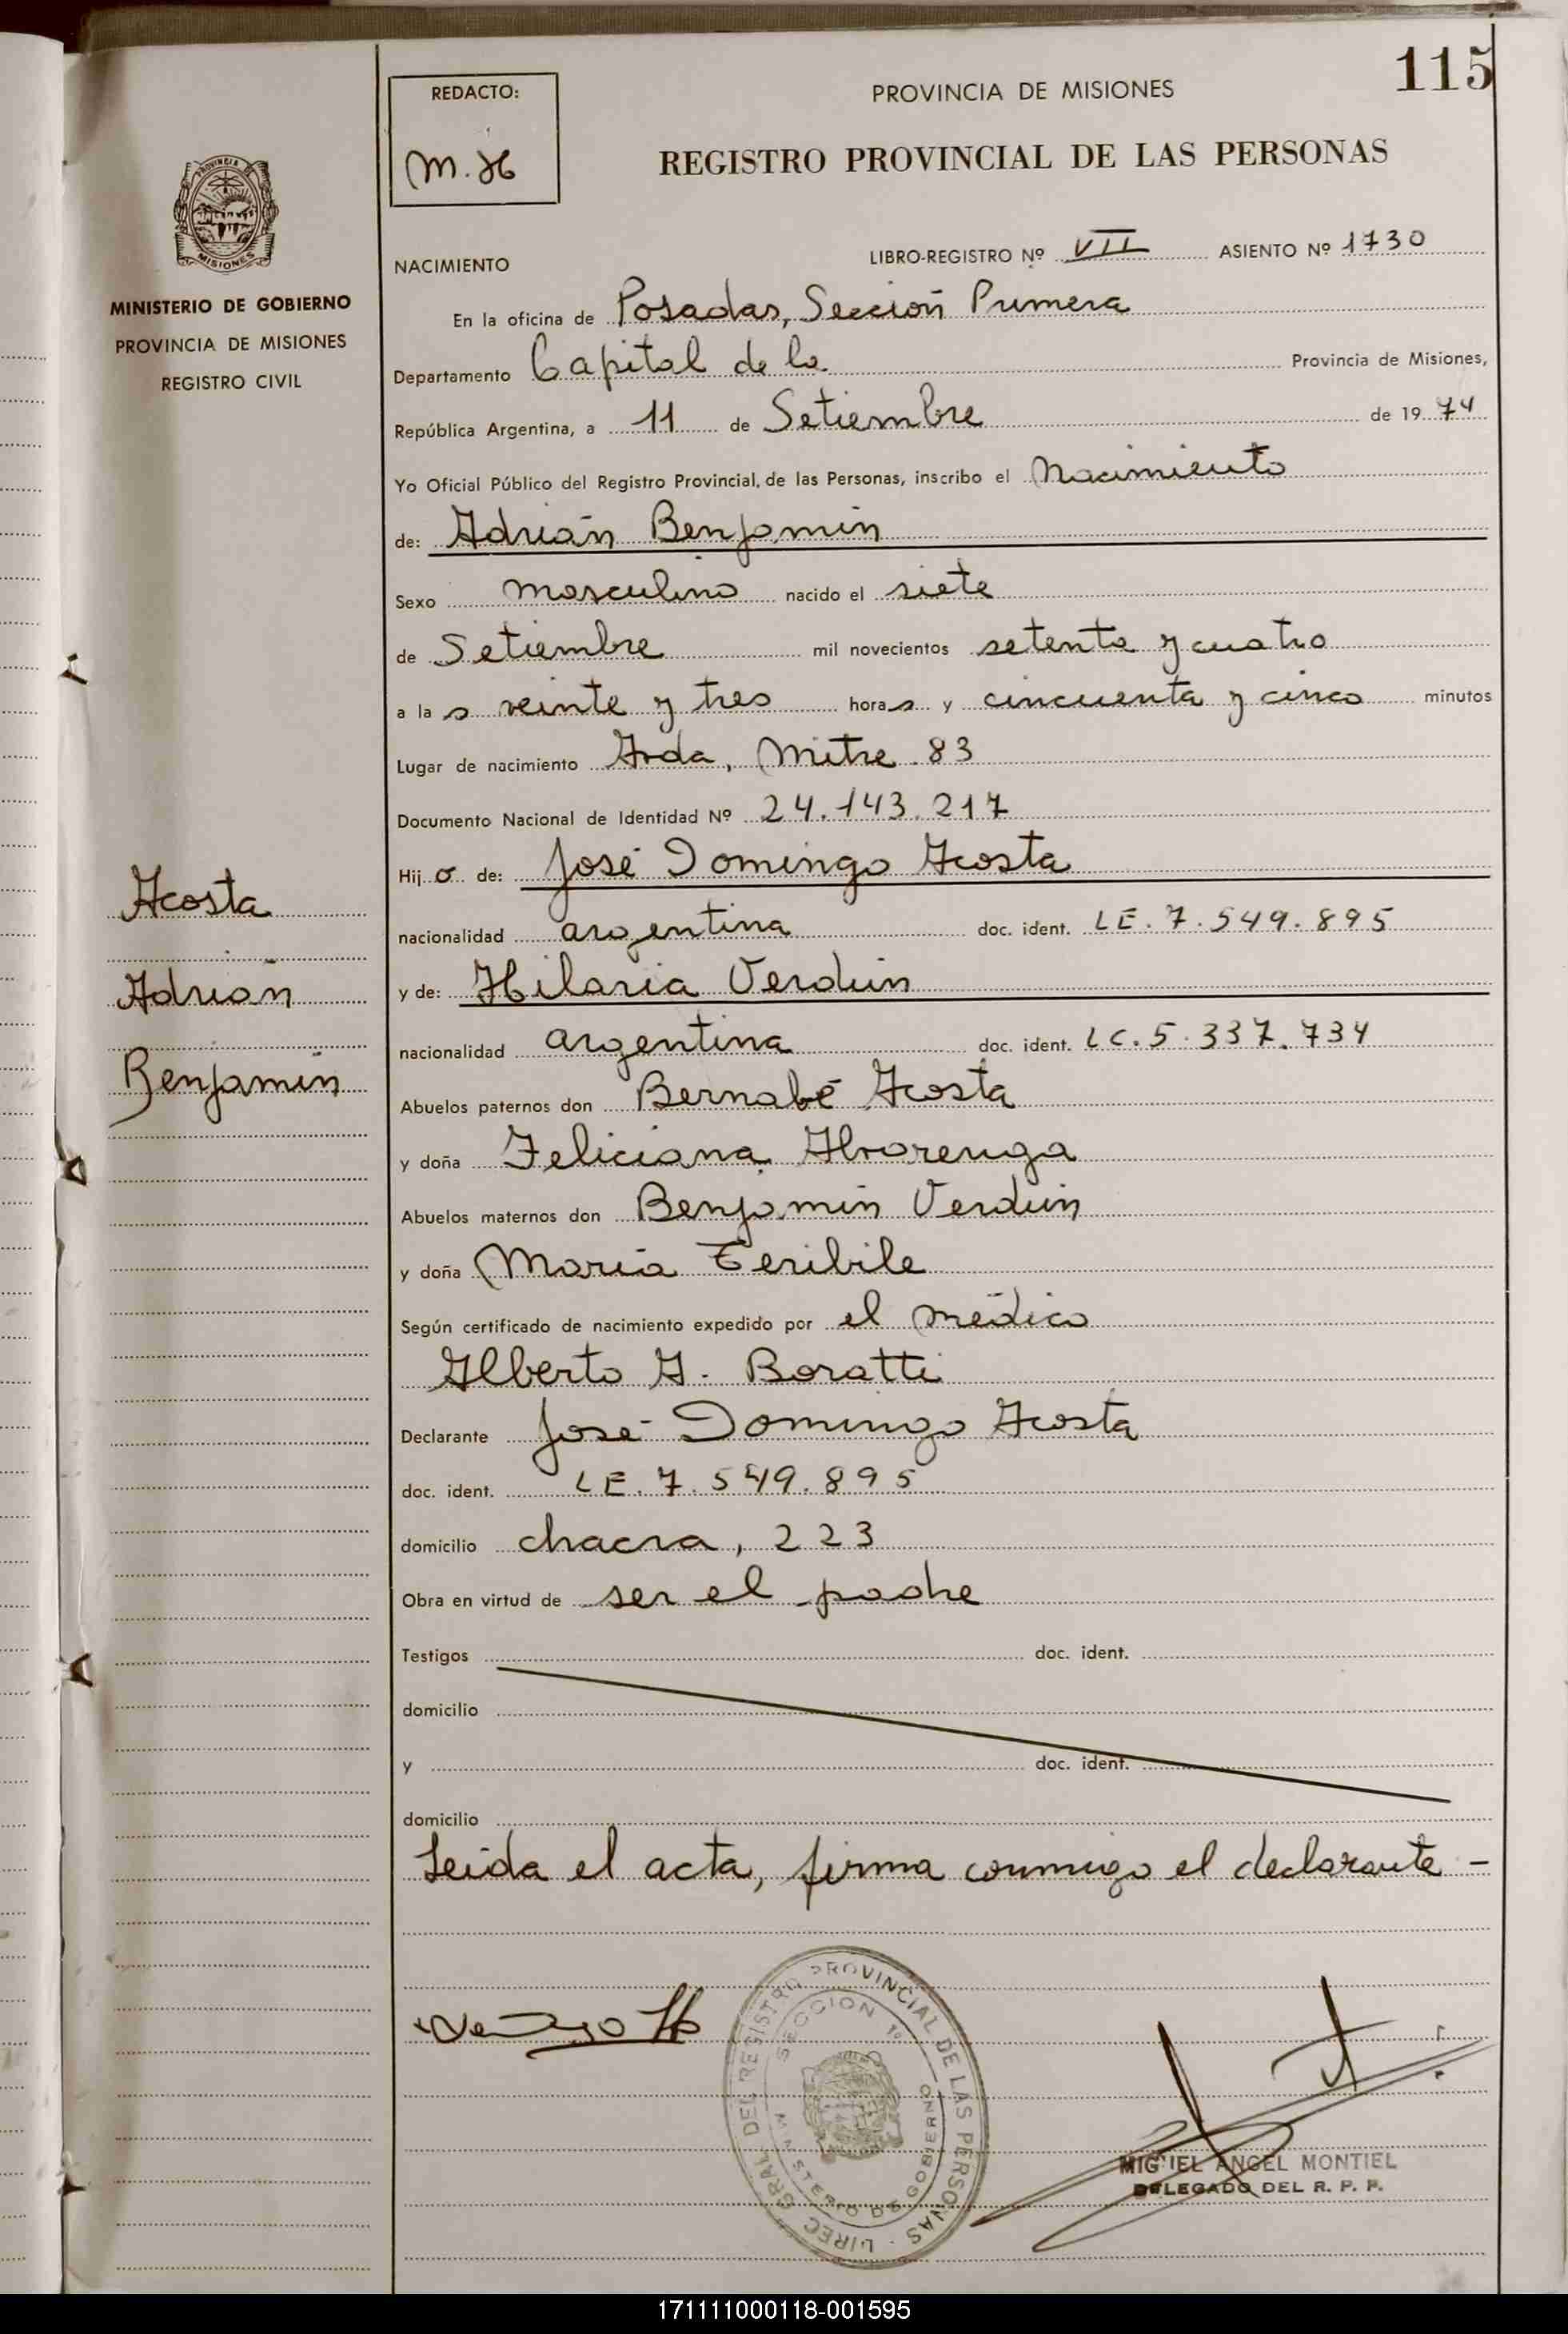 115
REDACTO:
M. H
PROVINCIA DE MISIONES
REGISTRO PROVINCIAL DE LAS PERSONAS
PROVINCIA
MISIONES
MINISTERIO DE GOBIERNO
PROVINCIA DE MISIONES
REGISTRO CIVIL
NACIMIENTO LIBRO-REGISTRO Nº VII ASIENTO Nº 1730
En la oficina de Posadas, Sección Primera
Departamento Capital de la Provincia de Misiones,
República Argentina, a 11 de Setiembre de 1974
Yo Oficial Público del Registro Provincial de las Personas, inscribo el Nacimiento
de: Adrián Benjamín
Sexo masculino nacido el siete
de Setiembre mil novecientos setenta y cuatro
a las veinte y tres horas y cincuenta y cinco minutos
Lugar de nacimiento Avda, Mitre 83
Documento Nacional de Identidad Nº 24.143.217
Hijo de: José Domingo Acosta
nacionalidad argentina doc. ident. LE. 7.549.895
y de: Hilaria Verdún
nacionalidad argentina doc. ident. LC. 5.337.734
Abuelos paternos don Bernabé Acosta
y doña Feliciana Alvarenga
Abuelos maternos don Benjamín Verdún
y doña María Teribile
Según certificado de nacimiento expedido por el médico
Alberto A. Boratti
Declarante José Domingo Acosta
doc. ident. LE. 7.549.895
domicilio chacra, 223
Obra en virtud de ser el padre
Testigos doc. ident.
domicilio
y doc. ident.
domicilio
Leída el acta, firma conmigo el declarante -
Acosta
Adrián
Benjamín
DIREC. GRAL DEL REGISTRO PROVINCIAL DE LAS PERSONAS
SECCION 1º
MINISTERIO DE GOBIERNO
MIGUEL ANGEL MONTIEL
DELEGADO DEL R. P. P.
171111000118-001595